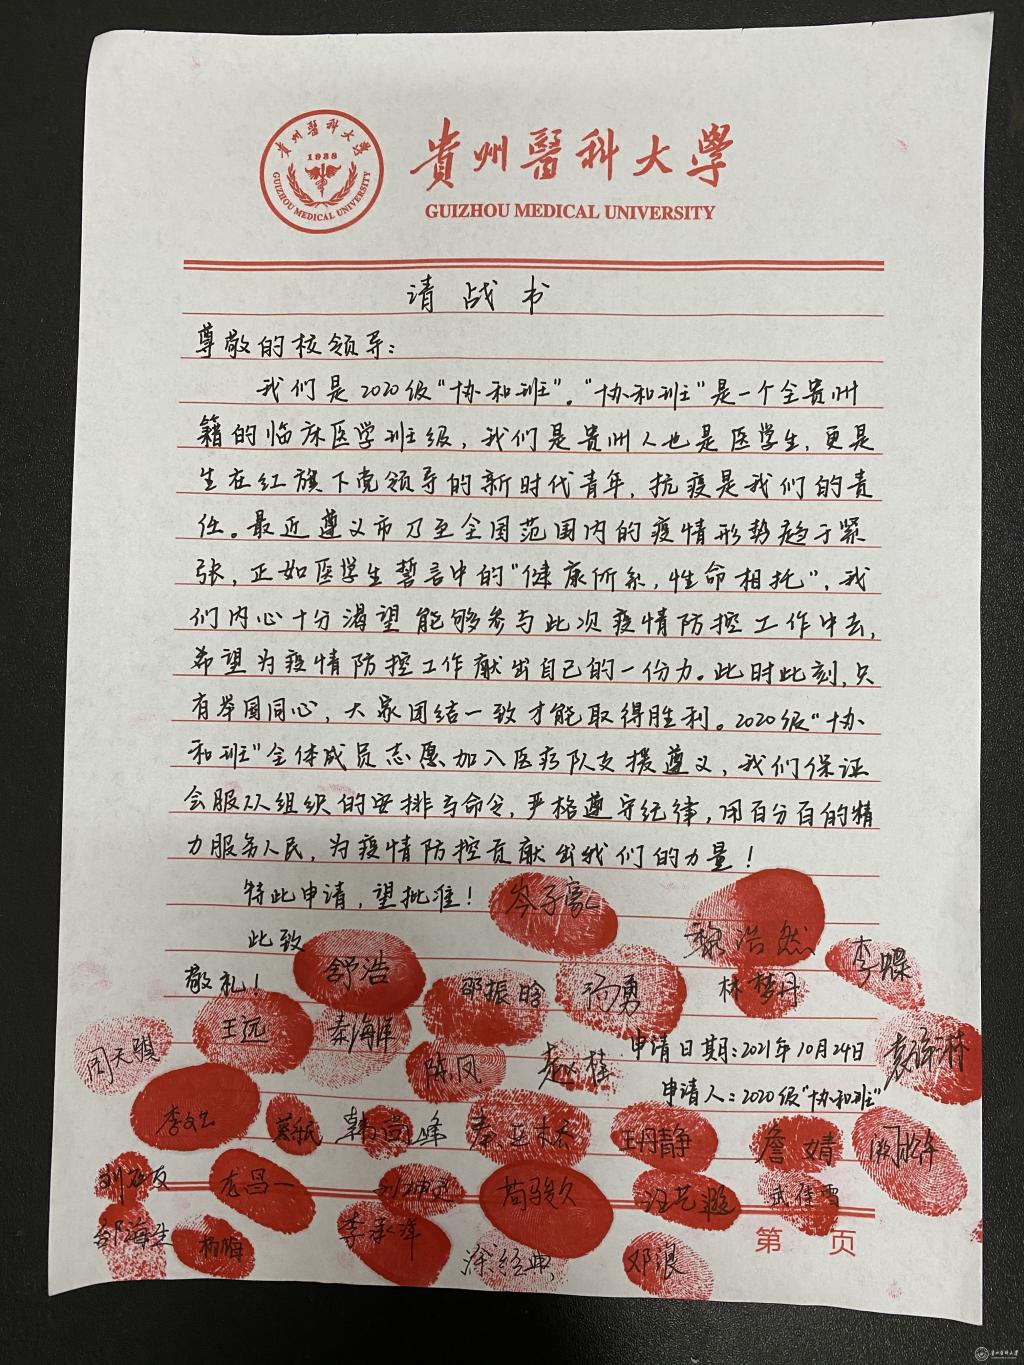 貴州醫科大學
1938
GUIZHOU MEDICAL UNIVERSITY
貴州醫科大學
GUIZHOU MEDICAL UNIVERSITY
请战书
尊敬的校领导：
我们是2020级“协和班”。“协和班”是一个全贵州
籍的临床医学班级，我们是贵州人也是医学生，更是
生在红旗下党领导的新时代青年，抗疫是我们的责
任。最近遵义市乃至全国范围内的疫情形势趋于紧
张，正如医学生誓言中的“健康所系，性命相托”，我
们内心十分渴望能够参与此次疫情防控工作中去，
希望为疫情防控工作献出自己的一份力。此时此刻，只
有举国同心，大家团结一致才能取得胜利。2020级“协
和班”全体成员志愿加入医疗队支援遵义，我们保证
会服从组织的安排与命令，严格遵守纪律，用百分百的精
力服务人民，为疫情防控贡献出我们的力量！
特此申请，望批准！ 岑子豪
此致 黎浩然
敬礼！ 舒浩 邹振晗 杨勇 林梦丹 李
周天骐 王远 秦海洋
陈凤 赵桂 申请日期：2021年10月24日 袁
申请人：2020级“协和班”
李 韩尚峰 秦亚 王丹静 詹婧
刘 龙昌一 刘 苟骏久 汪艺璇 武佳雪
邹海生 杨梅 李承洋 涂经典 邓浪
第 页
贵州医科大学